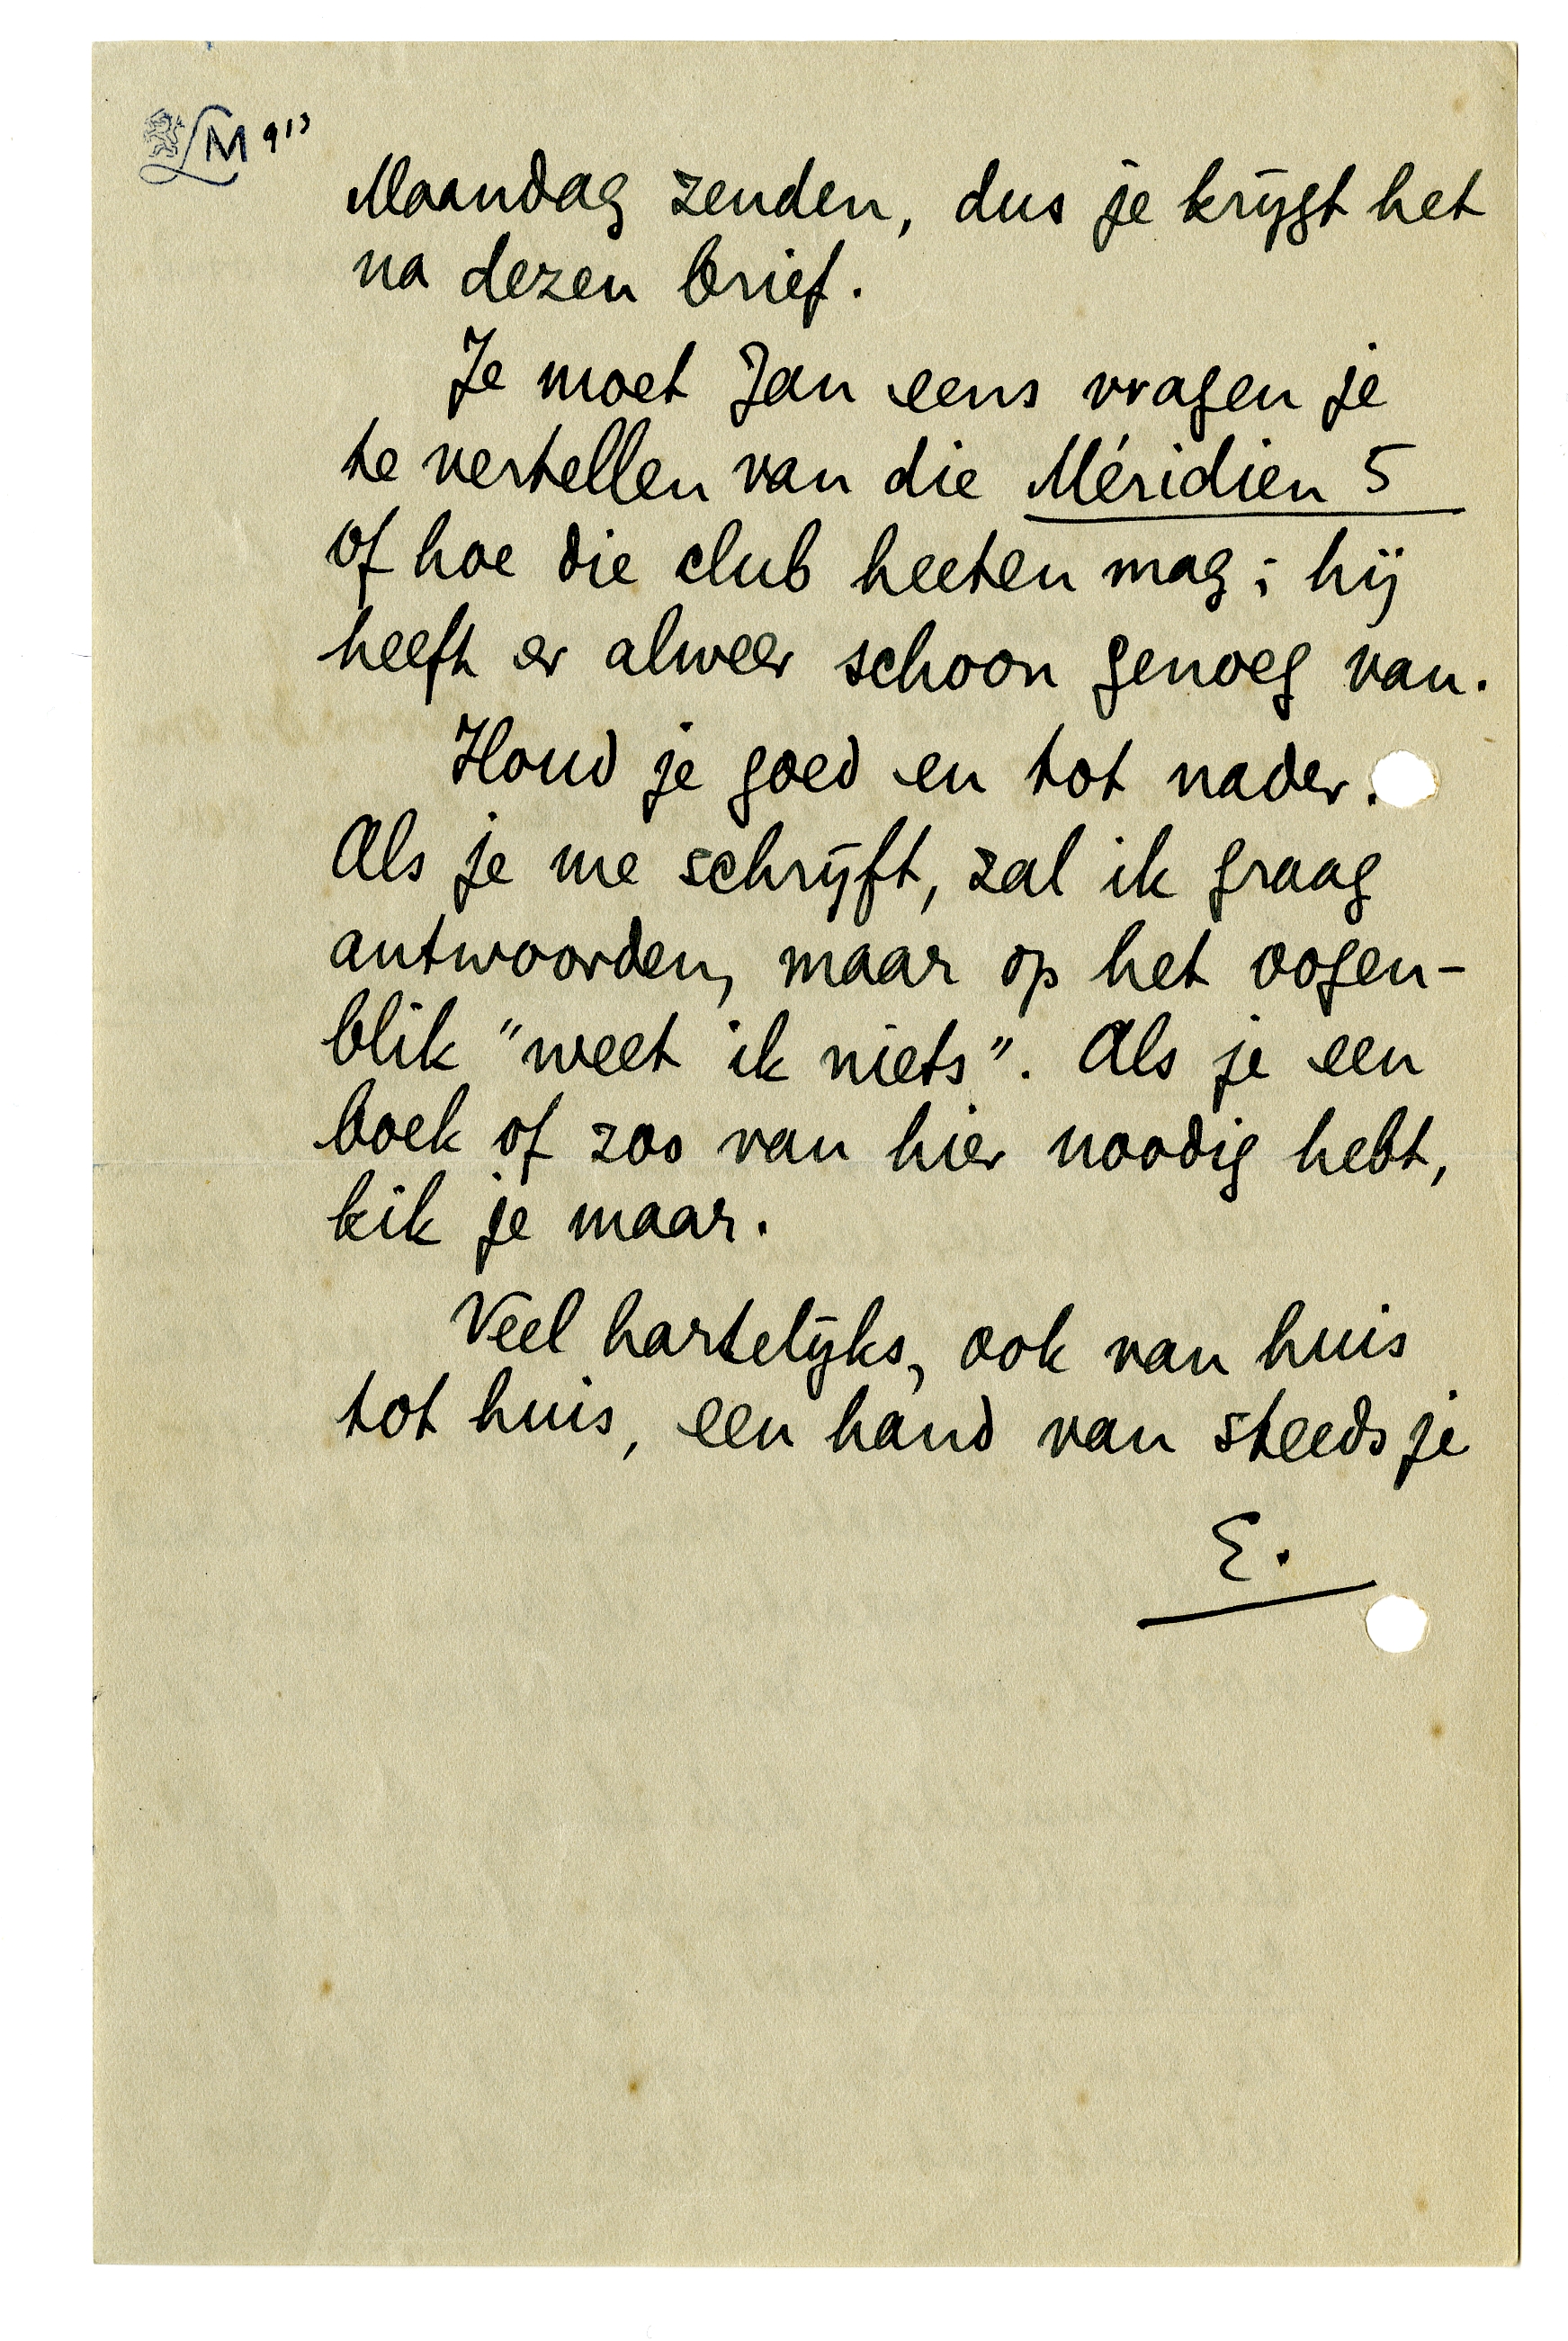 LM 913
Maandag zenden, dus je krijgt het
na dezen brief.
Je moet Jan eens vragen je
te vertellen van die Méridien 5
of hoe die club heeten mag; hij
heeft er alweer schoon genoeg van.
Houd je goed en tot nader.
Als je me schrijft, zal ik graag
antwoorden, maar op het oogen-
blik "weet ik niets". Als je een
boek of zoo van hier noodig hebt,
kik je maar.
Veel hartelijks, ook van huis
tot huis, een hand van steeds je
E.